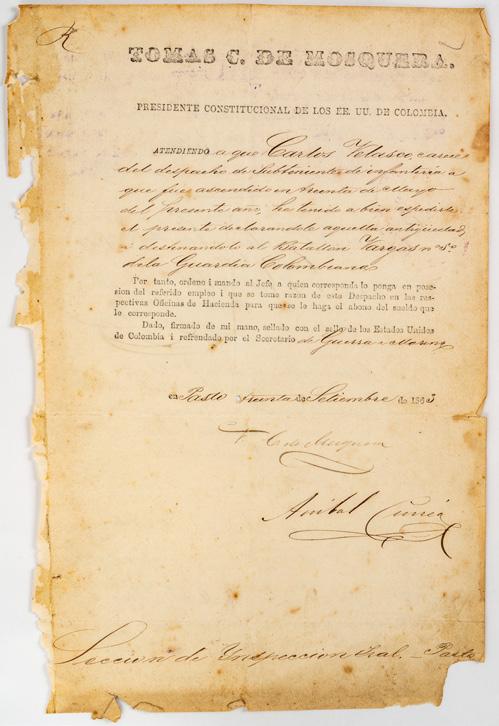 TOMAS C. DE MOSQUERA.
PRESIDENTE CONSTITUCIONAL DE LOS EE. UU. DE COLOMBIA.
ATENDIENDO a que Carlos Velasco, carece
del despacho de Subteniente de infanteria a
que fue ascendido en treinta de Mayo
del presente año, ha tenido a bien espedirle
el presente declarandole aquella antigüedad,
i destinandole al Batallon Vargas nº 5º
de la Guardia Colombiana
Por tanto, ordeno i mando al Jefe a quien corresponda lo ponga en pose-
sion del referido empleo i que se tome razon de este Despacho en las res-
pectivas Oficinas de Hacienda para que se le haga el abono del sueldo que
le corresponde.
Dado, firmado de mi mano, sellado con el sello de los Estados Unidos
de Colombia i refrendado por el Secretario de Guerra i Marina
en Pasto treinta de Setiembre de 1863
T. C. de Mosquera
Anibal
Seccion de Inspeccion Jral. - Pasto